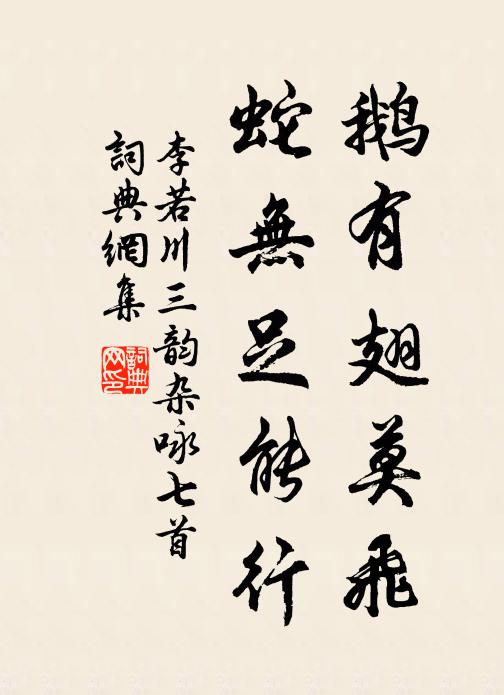 鵝有翅莫飛
蛇無足能行
李若川三韵杂咏七首
詞典網集
詞典网印